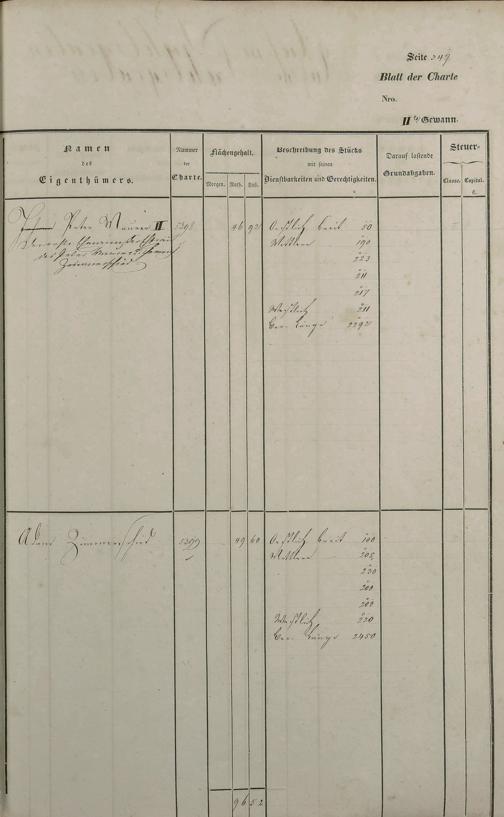 Seite 349
Blatt der Charte
Nro.
II te Gewann.
Namen
des
Eigenthümers.
Nummer
der
Charte.
Flächengehalt.
Morgen. Ruth. Sch.
Beschreibung des Stücks
mit seinen
Dienstbarkeiten und Gerechtigkeiten.
Darauf lastende
Grundabgaben.
Steuer-
Classe. Capital.
fl.
Peter Maurer II 5398 46 92 Oestlich breit 80
Mitten 190
223
211
217
Westlich 211
Ber. Länge 2292
Adam Zimmerschied 5399 49 60 Oestlich breit 100
Mitten 205
230
202
Westlich 220
Ber. Länge 2450
96 52